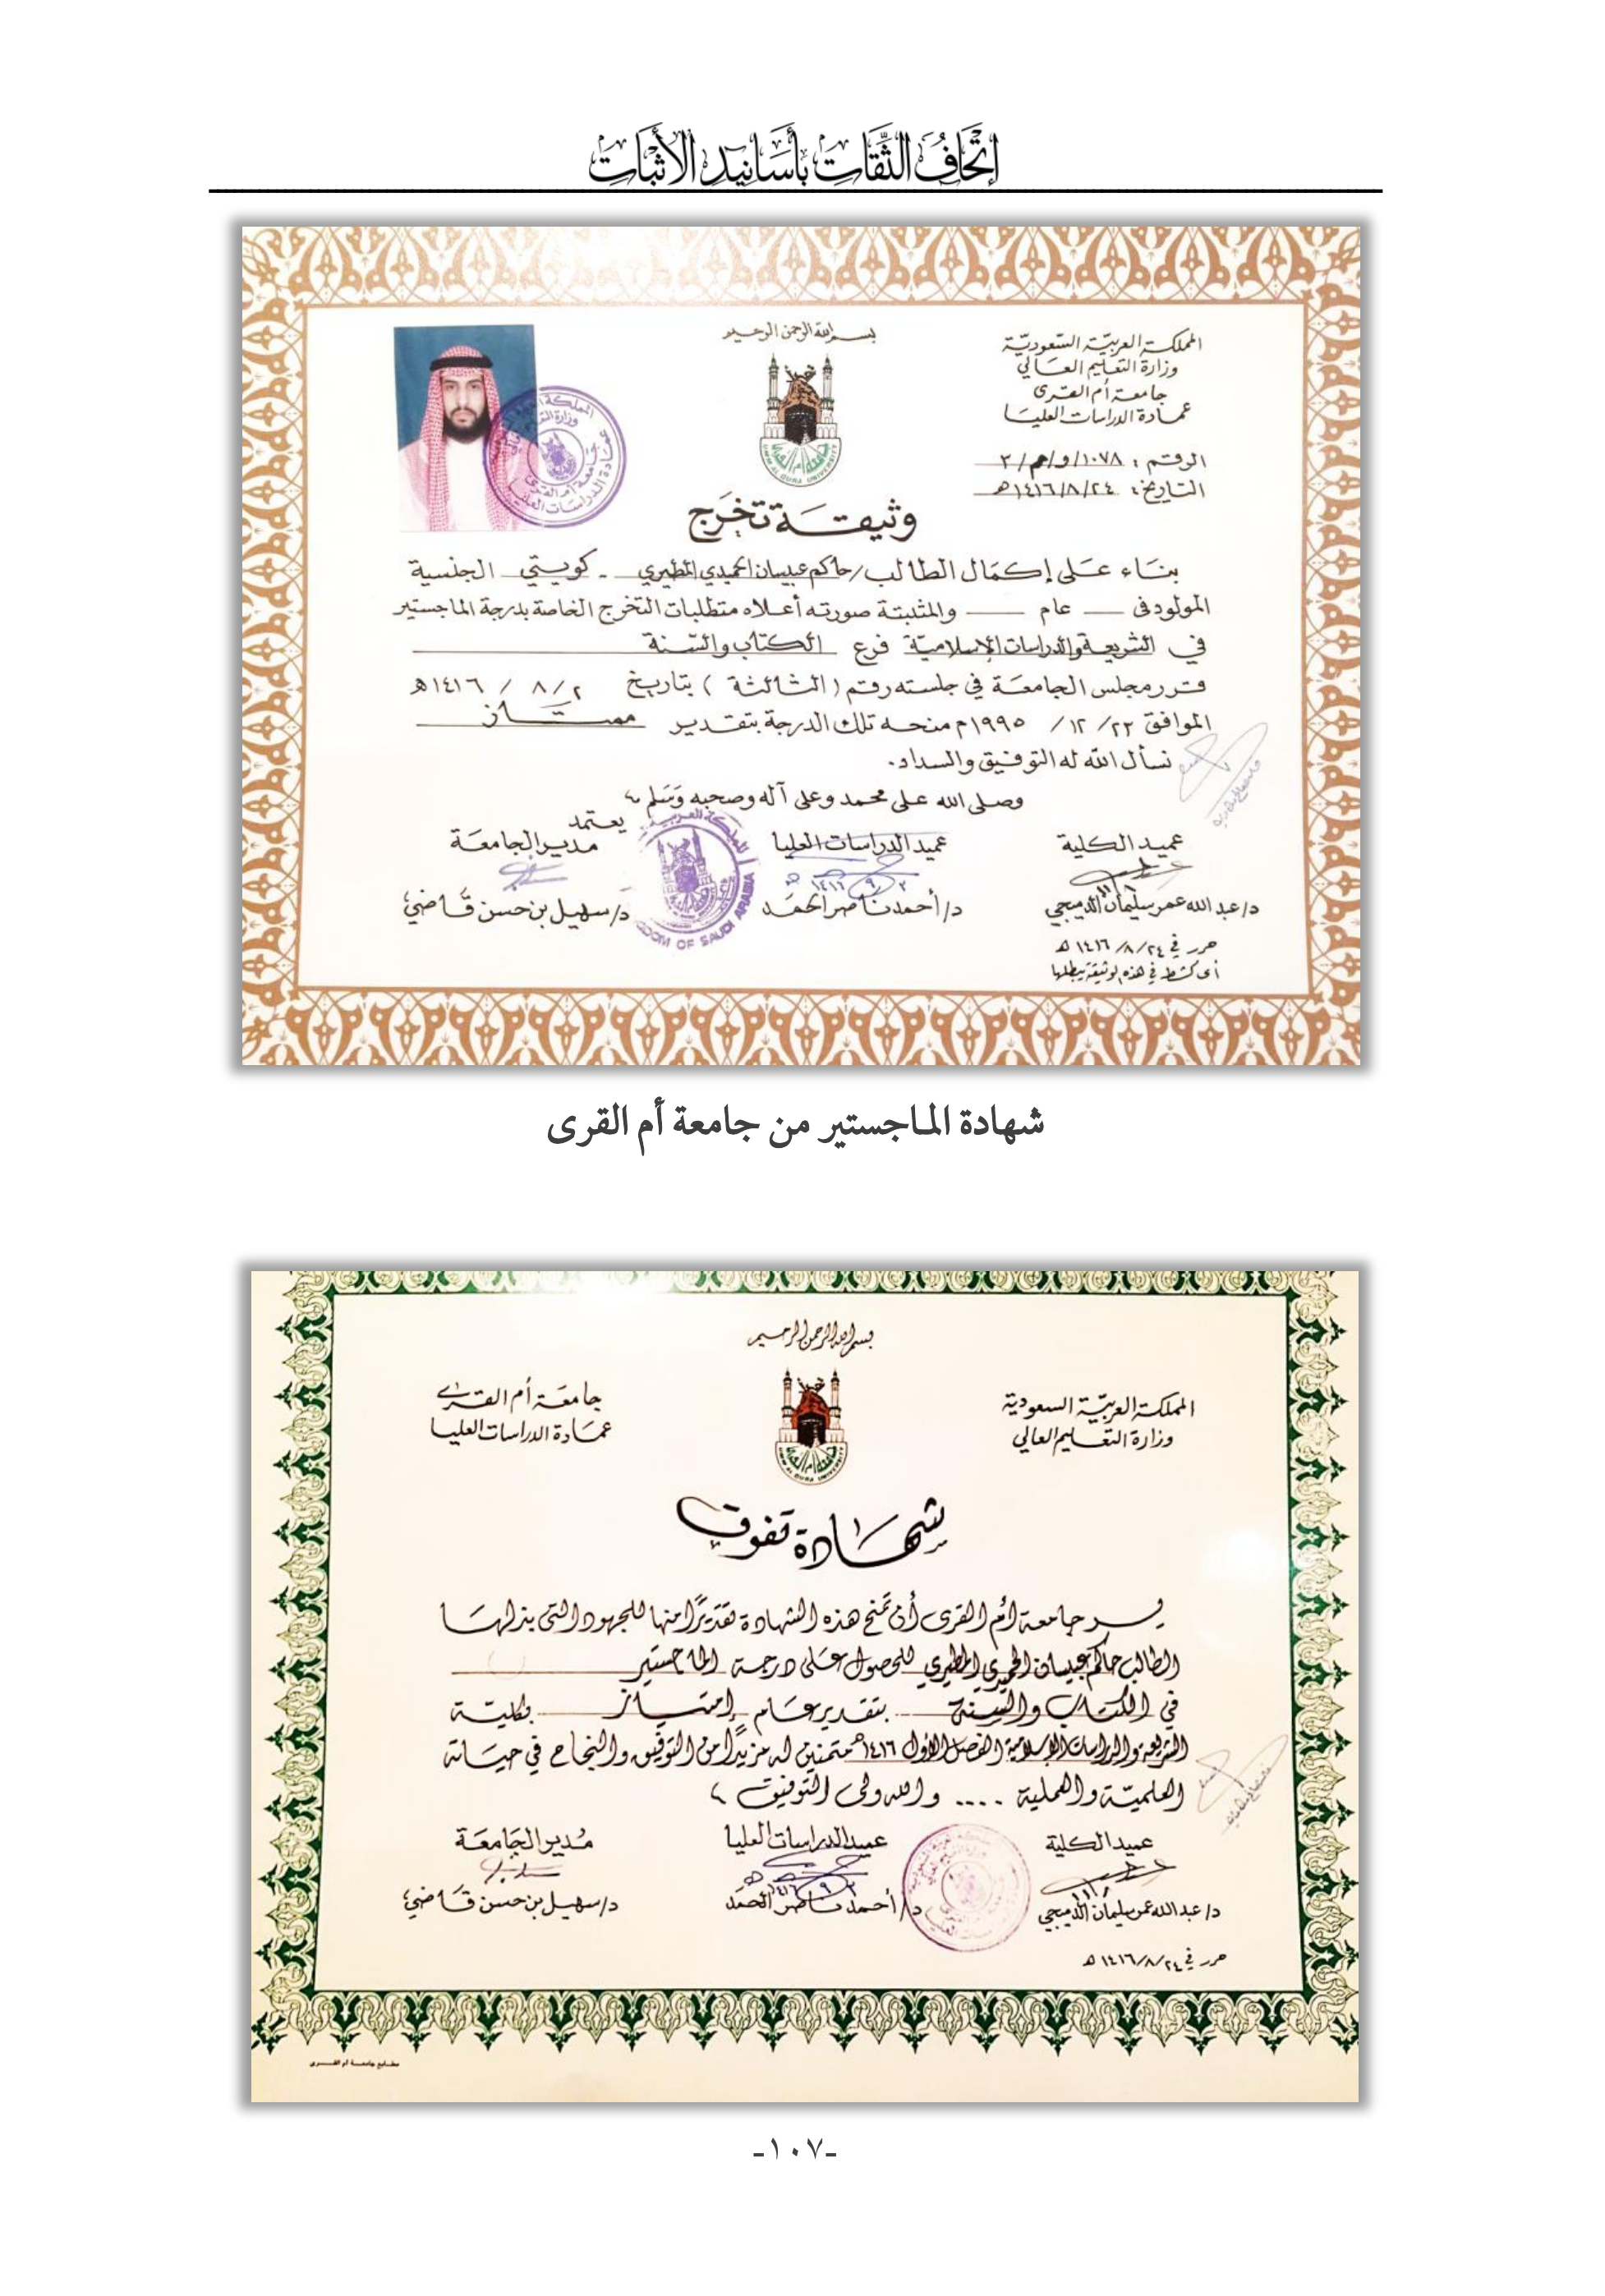 إتحاف الثقات بأسانيد الأثبات
بسم الله الرحمن الرحيم
المملكة العربية السعودية
وزارة التعليم العالي
جامعة أم القرى
عمادة الدراسات العليا
الرقم : ١٠٧٨/و/م/٢
التاريخ : ١٤١٦/٨/٢٤هـ
UMM AL QURA UNIVERSITY
وثيقة تخرج
بناء على إكمال الطالب/حاكم عبيسان الحميدي المطيري - كويتي الجنسية
المولود في — عام — والمثبتة صورته أعلاه متطلبات التخرج الخاصة بدرجة الماجستير
في الشريعة والدراسات الإسلامية فرع الكتاب والسنة
قرر مجلس الجامعة في جلسته رقم ( الثالثة ) بتاريخ ٨/٢ / ١٤١٦هـ
الموافق ٢٢/ ١٢ / ١٩٩٥م منحه تلك الدرجة بتقدير ممتاز
نسأل الله له التوفيق والسداد.
وصلى الله على محمد وعلى آله وصحبه وسلم ،
يعتمد
عميد الكلية عميد الدراسات العليا مدير الجامعة
د/عبد الله عمر سليمان الدميجي د/أحمد ناصر الحمد د/سهيل بن حسن قاضي
حرر في ١٤١٦/٨/٢٤ هـ
أي كشط في هذه الوثيقة يبطلها
شهادة الماجستير من جامعة أم القرى
بسم الله الرحمن الرحيم
المملكة العربية السعودية
وزارة التعليم العالي
جامعة أم القرى
عمادة الدراسات العليا
شهادة تفوق
يسر جامعة أم القرى أن تمنح هذه الشهادة تقديرًا منها للجهود التي بذلها
الطالب حاكم عبيسان الحميدي المطيري للحصول على درجة الماجستير
في الكتاب والسنة بتقدير عام إمتياز بكلية
الشريعة والدراسات الإسلامية الفصل الأول ١٤١٦هـ متمنين له مزيدًا من التوفيق والنجاح في حياته
العلمية والعملية .... والله ولي التوفيق ،
عميد الكلية عميد الدراسات العليا مدير الجامعة
د/عبد الله عمر سليمان الدميجي د/أحمد ناصر الحمد د/سهيل بن حسن قاضي
حرر في ١٤١٦/٨/٢٤ هـ
مطابع جامعة أم القرى
-١٠٧-